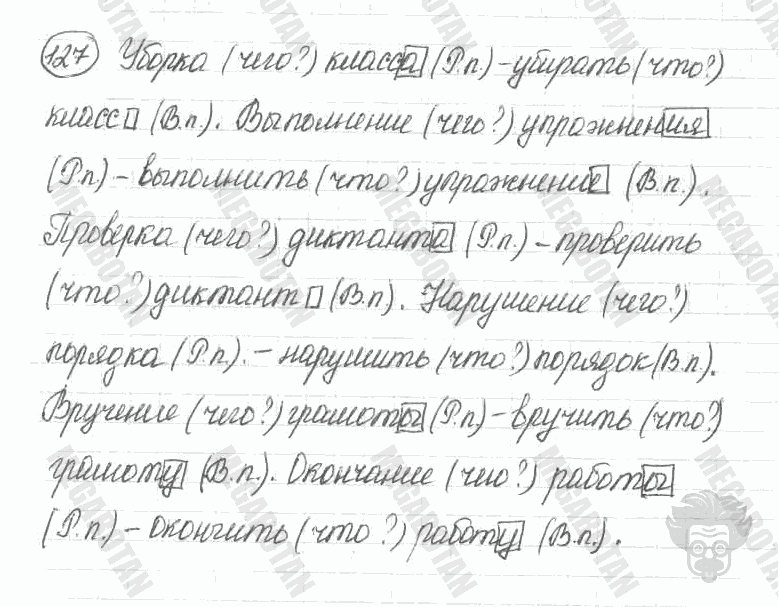 127 Уборка (чего?) класса (Р.п.) - убирать (что?)
класс (В.п.). Выполнение (чего?) упражнения
(Р.п) - выполнить (что?) упражнение (В.п.).
Проверка (чего?) диктанта (Р.п.) - проверить
(что?) диктант (В.п). Нарушение (чего?)
порядка (Р.п). - нарушить (что?) порядок (В.п).
Вручение (чего?) грамоты (Р.п) - вручить (что?)
грамоту (В.п). Окончание (чего?) работы
(Р.п.) - окончить (что?) работу (В.п.).
MEGABOTAN